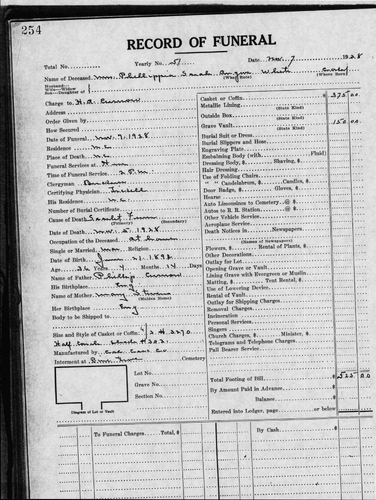 254
RECORD OF FUNERAL
Total No. Yearly No. 51 Date Nov. 7 1928
Name of Deceased Mrs. Phillippia Sarah White
(What Race) (Where Born)
Husband of
Wife or Widow
Son or Daughter of
Charge to H.A. Curnow
Address
Order Given by
How Secured
Date of Funeral Nov. 7, 1928
Residence N.C.
Place of Death N.C.
Funeral Services at Home
Time of Funeral Service 2 P.M.
Clergyman
Certifying Physician
His Residence N.C.
Number of Burial Certificate
Cause of Death Scarlet Fever
(Secondary)
Date of Death Nov. 5, 1928
Occupation of the Deceased At Home
Single or Married Mar. Religion
Date of Birth June 21, 1892
Age 36 Years 4 Months 14 Days
Name of Father Phillip Curnow
His Birthplace Eng
Name of Mother Mary
(Maiden Name)
Her Birthplace Eng
Body to be Shipped to
Size and Style of Casket or Coffin 6/3 # 3270
Half Couch #202
Manufactured by Cas Co
Interment at Cemetery
Lot No.
Grave No.
Section No.
Diagram of Lot or Vault
Casket or Coffin $ 375 00
Metallic Lining
(State Kind)
Outside Box
(State Kind)
Grave Vault 150 00
(State Kind)
Burial Suit or Dress
Burial Slippers and Hose
Engraving Plate
Embalming Body (with Fluid)
Dressing Body, $ Shaving, $
Hair Dressing
Use of Folding Chairs
" " Candelabrum, $ Candles, $
Door Badge, $ Gloves, $
Hearse
Auto Limousines to Cemetery @ $
Autos to R. R. Station @ $
Other Vehicle Service
Aeroplane Service
Death Notices in Newspapers
(Names of Newspapers)
Flowers, $ Rental of Plants, $
Other Decorations
Outlay for Lot
Opening Grave or Vault
Lining Grave with Evergreen or Muslin
Matting, $ Tent Rental, $
Use of Lowering Device
Rental of Vault
Outlay for Shipping Charges
Removal Charges
Incineration
Personal Services
Singers
Church Charges, $ Minister, $
Telegrams and Telephone Charges
Pall Bearer Service
Total Footing of Bill $ 525 00
By Amount Paid in Advance
Balance
Entered into Ledger, page or below
To Funeral Charges Total, $ By Cash $